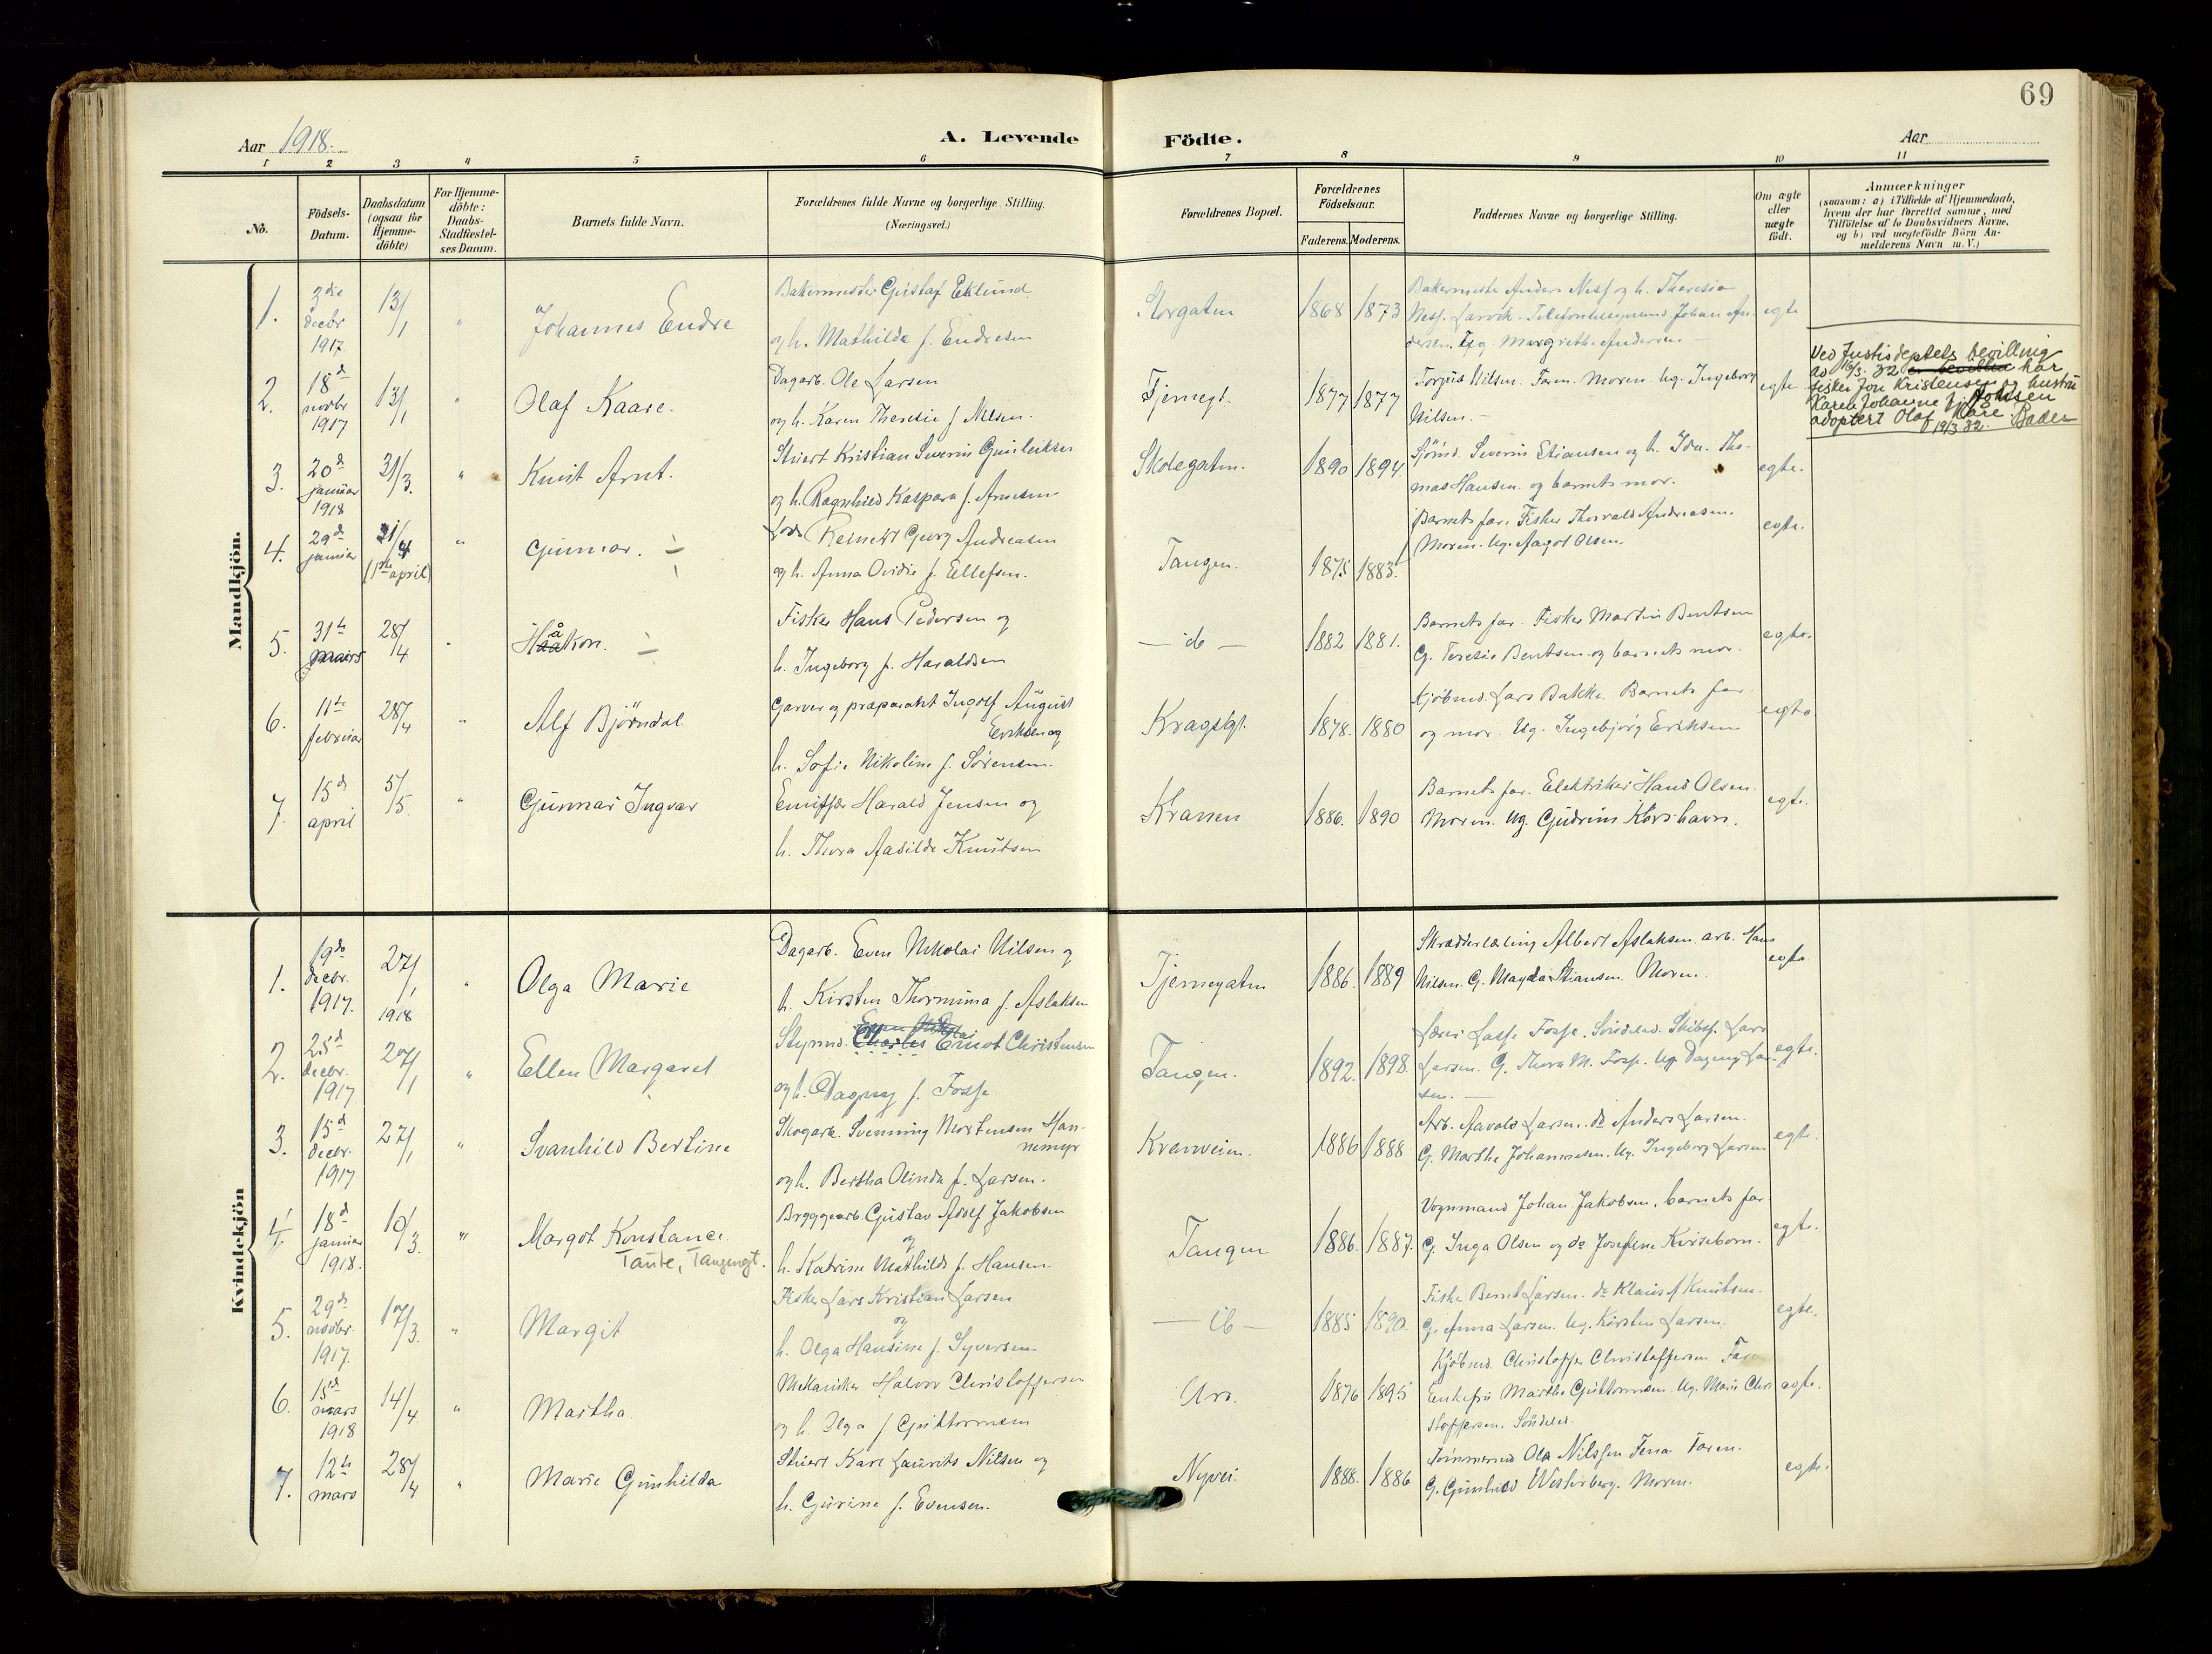 69
Aar 1918.
A. Levende Födte.
Aar
1 2 3 4 5 6 7 8 9 10 11
No.
Födsels-
Datum.
Daabsdatum
(ogsaa for
Hjemme-
döbte)
For Hjemme-
döbte:
Daabs-
Stadfæstel-
ses Datum.
Barnets fulde Navn.
Forældrenes fulde Navne og borgerlige Stilling.
(Næringsvei.)
Forældrenes Bopæl.
Forældrenes
Födselsaar.
Faderens. Moderens.
Faddernes Navne og borgerlige Stilling.
Om ægte
eller
uægte
födt.
Anmærkninger
(saasom: a) i Tilfælde af Hjemmedaab,
hvem der har forrettet samme, med
Tilföielse af to Daabsvidners Navne,
og b) ved uægtefödte Börn An-
melderens Navn m. V.)
Mandkjön.
1. 3die decbr 1917 13/1 " Johannes Endre
Bakermester Gustaf Eklund
og h. Mathilde f. Endresen
Storgaten 1868 1873
Bakermester Anders Ness og h. Theresia
Ness. Larvik. Johan An-
dersen. Ug. Margrethe Andersen. —
egte
2. 18d novbr 1917 13/1 " Olaf Kaare.
Dagarb. Ole Larsen
og h. Karen Theresie f. Nilsen.
Tjernegt. 1877 1877
Torjus Nilsen. Faren. Moren. Ug. Ingeborg
Nilsen. —
egte
Ved Justisdeptets bevilling
av 16/3. 32 har
fisker Jon Kristensen og hustru
Karen Johanne f.
adoptert Olaf Kåre.
19/3 32. Bader
3. 20d januar 1918 31/3. " Knut Arnt.
Stuert Kristian Severin Gunleiksen
og h. Ragnhild Kaspara f. Arnesen
Skolegaten. 1890 1894.
Sjömd. Severin Stiansen og h. Ida. Tho-
mas Hansen. og barnets mor.
egte.
4. 29d januar 21/4 (1ste april) " Gunnar.
Lods Reinert Georg Andreasen
og h. Anna Ovidie f. Ellefsen.
Tangen. 1875 1883.
Barnets far. Fisker Thorvald Andreasen.
Moren. Ug. Aagot Olsen.
egte.
5. 31te 28/4 " Håkon.
Fisker Hans Pedersen og
h. Ingeborg f. Haraldsen
— do — 1882 1881.
Barnets far. Fisker Martin Bentsen
G. Teresie Bentsen og barnets mor.
egte.
6. 11te februar 28/4 " Alf Björndal
Garver og præparant Ingolf August
Eriksen og
h. Sofie Nikoline f. Sörensen.
Kragsgt. 1878. 1880
Kjöbmd. Lars Bakke. Barnets far
og mor. Ug. Ingebjörg Eriksen
egte
7. 15de april 5/5. " Gunnar Ingvar
Harald Jensen og
h. Thora Aasilde Knutsen
Kranen 1886. 1890
Barnets far. Elektriker Hans Olsen.
Moren. Ug. Gudrun Korshavn.
egte.
Kvindekjön
1. 19de decbr. 1917. 27/1 1918 " Olga Marie
Dagarb. Even Nikolai Nilsen og
h. Kirsten Thormina f. Aslaksen
Tjernegaten 1886. 1889
Skrædderlærling Albert Aslaksen. arb. Hans
Nilsen. G. Magda Stiansen. Moren.
egte
2. 25d decbr. 1917 27/1 " Ellen Margaret
Styrmd. Charles Ernst Christensen
og h. Dagny f. Fosse
Tangen. 1892. 1898.
Lærer Lasse Fosse. Söndeled. Skibsf. Lars
Larsen. G. Thora M. Fosse. Ug. Dagny Lar-
sen. —
egte.
3. 15d decbr. 1917 27/1 " Svanhild Bertine
Skogarb. Svenning Mortensen Han-
nemyr
og h. Bertha Olinda f. Larsen.
Kranveien. 1886 1888
Arb. Aavald Larsen. do Anders Larsen.
G. Marthe Johannesen. Ug. Ingeborg Larsen
egte.
4. 18d januar 1918. 10/3. " Margot Konstance.
Tante, Tangengt.
Bryggearb. Gustav Adolf Jakobsen
og
h. Katrine Mathilde f. Hansen.
Tangen 1886. 1887.
Vognmand Johan Jakobsen. barnets far
G. Inga Olsen og do Josefine Kviseborn.
egte.
5. 29d novbr. 1917. 17/3. " Margit
Fisker Lars Kristian Larsen
og
h. Olga Hansine f. Syversen
— do — 1885 1890.
Fisker Bernt Larsen. do Klaus Knutsen.
G. Anna Larsen. Ug. Kirsten Larsen.
egte.
6. 15d mars 1918 14/4. " Martha.
Mekaniker Halvor Christoffersen
og h. Olga f. Guttormsen
Uro. 1876 1895
Kjöbmd. Christoffer Christoffersen Far
Enkefru Marthe Guttormsen. Ug. Marie Chri
stoffersen. Söndeled.
egte.
7. 12te mars 28/4 " Marie Gunhilda
Stuert Karl Laurits Nilsen og
h. Gurine f. Evensen.
Nyvei. 1888. 1886
Tömmermd Ola Nilssen Faren.
G. Gunhild Westerberg. Moren.
egte.